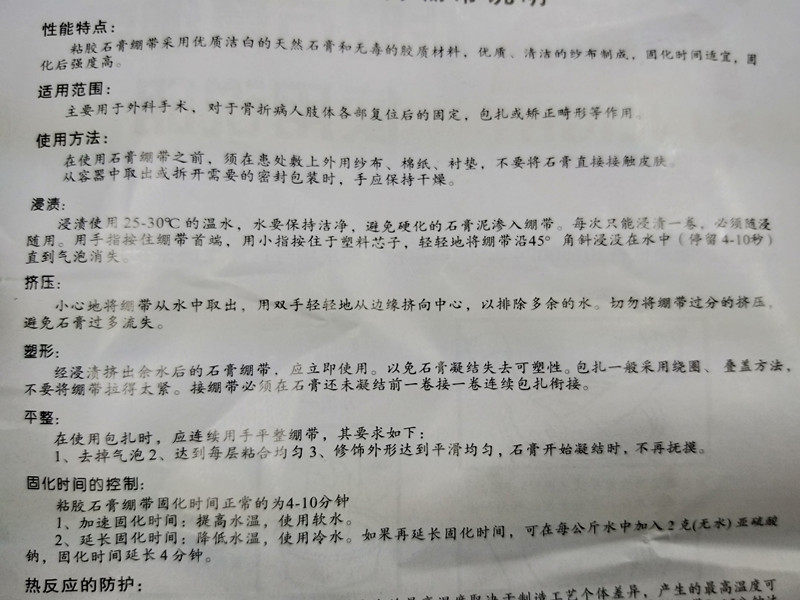 性能特点：
粘胶石膏绷带采用优质洁白的天然石膏和无毒的胶质材料，优质、清洁的纱布制成，固化时间适宜，固
化后强度高。
适用范围：
主要用于外科手术，对于骨折病人肢体各部复位后的固定，包扎或矫正畸形等作用。
使用方法：
在使用石膏绷带之前，须在患处敷上外用纱布、棉纸、衬垫，不要将石膏直接接触皮肤。
从容器中取出或拆开需要的密封包装时，手应保持干燥。
浸渍：
浸渍使用25-30℃的温水，水要保持洁净，避免硬化的石膏泥渗入绷带。每次只能浸渍一卷，必须随浸
随用。用手指按住绷带首端，用小指按住于塑料芯子，轻轻地将绷带沿45°角斜浸没在水中（停留4-10秒）
直到气泡消失。
挤压：
小心地将绷带从水中取出，用双手轻轻地从边缘挤向中心，以排除多余的水。切勿将绷带过分的挤压，
避免石膏过多流失。
塑形：
经浸渍挤出余水后的石膏绷带，应立即使用。以免石膏凝结失去可塑性。包扎一般采用绕圈、叠盖方法，
不要将绷带拉得太紧。接绷带必须在石膏还未凝结前一卷接一卷连续包扎衔接。
平整：
在使用包扎时，应连续用手平整绷带，其要求如下：
1、去掉气泡 2、达到每层粘合均匀 3、修饰外形达到平滑均匀，石膏开始凝结时，不再抚摸。
固化时间的控制：
粘胶石膏绷带固化时间正常的为4-10分钟
1、加速固化时间：提高水温，使用软水。
2、延长固化时间：降低水温，使用冷水。如果再延长固化时间，可在每公斤水中加入2克(无水)亚硫酸
钠，固化时间延长4分钟。
热反应的防护：
最高温度取决于制造工艺个体差异，产生的最高温度可